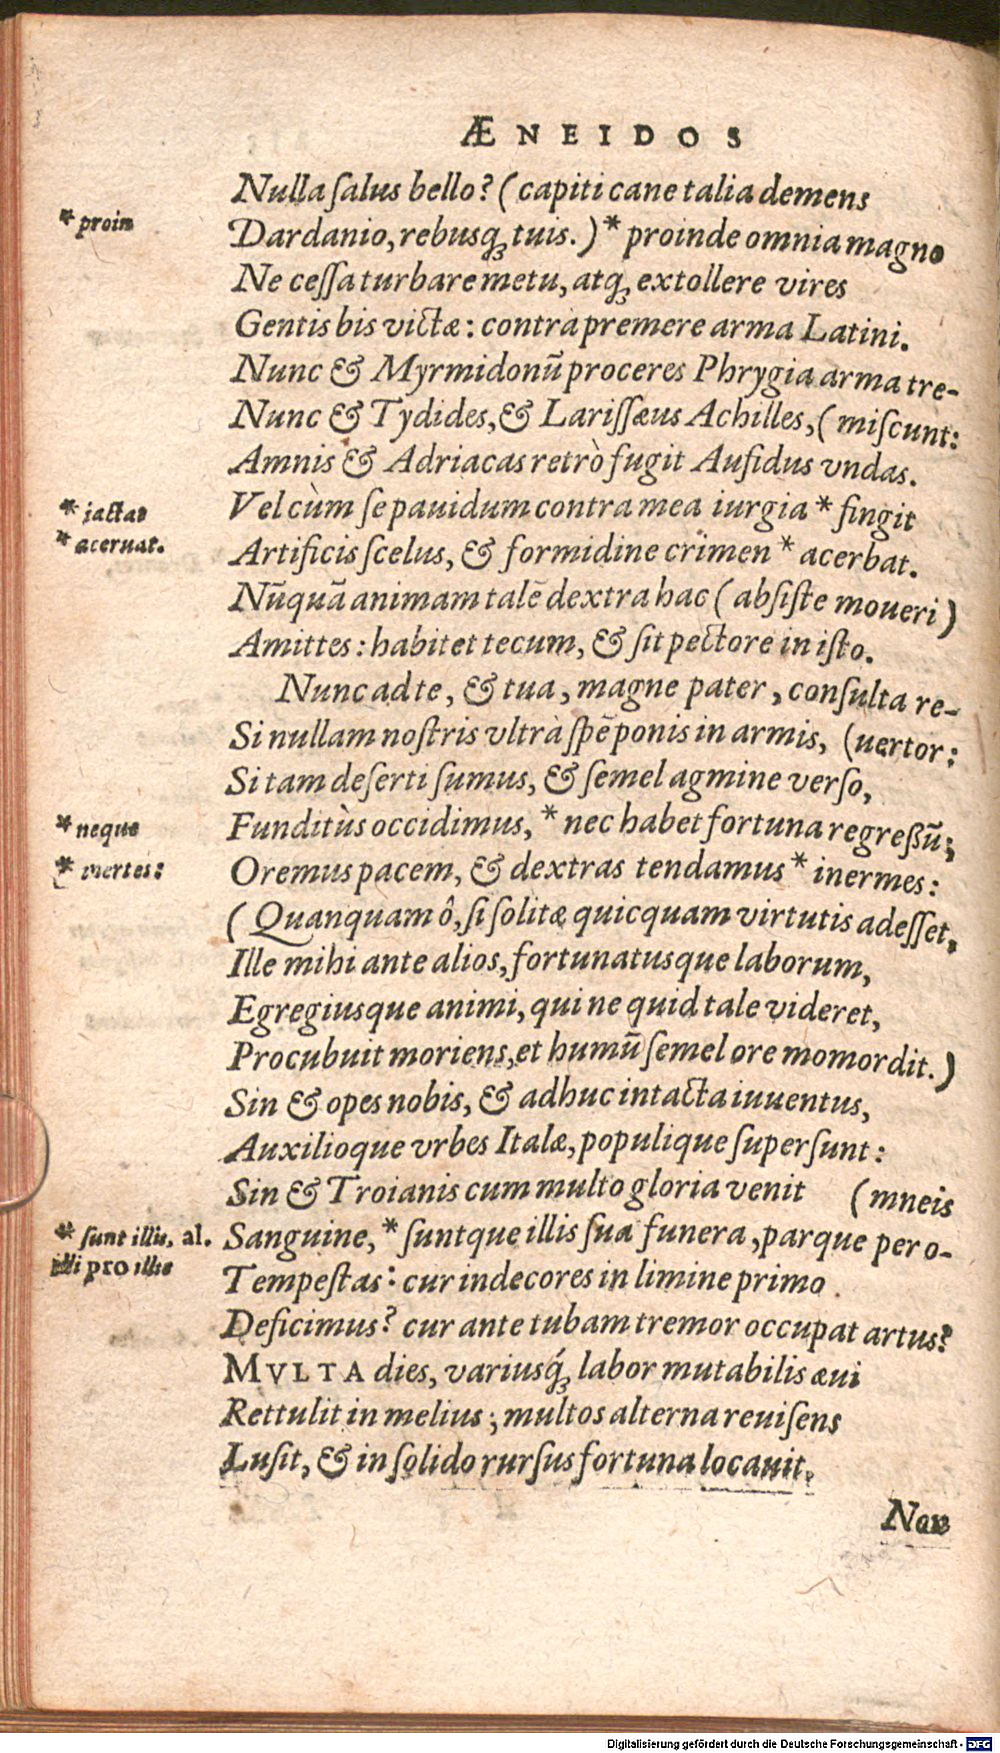 ÆNEIDOS
Nulla ſalus bello? (capiti cane talia demens
* proin
Dardanio, rebusq́ꝫ tuis.) * proinde omnia magno
Ne ceſſa turbare metu, atqꝫ extollere vires
Gentis bis victæ: contrà premere arma Latini.
Nunc & Myrmidonũ proceres Phrygia arma tre-
Nunc & Tydides, & Lariſſæus Achilles, (miſcunt:
Amnis & Adriacas retrò fugit Aufidus vndas.
* jactat
Vel cùm ſe pauidum contra mea iurgia * fingit
* aceruat.
Artificis ſcelus, & formidine crimen * acerbat.
Nũquã animam talẽ dextra hac (abſiſte moueri)
Amittes: habitet tecum, & ſit pectore in iſto.
Nunc ad te, & tua, magne pater, conſulta re-
Si nullam noſtris vltrà ſpẽ ponis in armis, (uertor:
Si tam deſerti ſumus, & ſemel agmine verſo,
* neque
Funditùs occidimus, * nec habet fortuna regreßũ;
* inertes:
Oremus pacem, & dextras tendamus * inermes:
(Quanquam ô, ſi ſolitæ quicquam virtutis adeſſet,
Ille mihi ante alios, fortunatusque laborum,
Egregiusque animi, qui ne quid tale videret,
Procubuit moriens, et humũ ſemel ore momordit.)
Sin & opes nobis, & adhuc intacta iuuentus,
Auxilioque vrbes Italæ, populique ſuperſunt:
Sin & Troianis cum multo gloria venit (mneis
* ſunt illis, al.
illi pro illis
Sanguine, * ſuntque illis ſua funera, parque per o-
Tempeſtas: cur indecores in limine primo
Deficimus? cur ante tubam tremor occupat artus?
MVLTA dies, variusq́ꝫ labor mutabilis æui
Rettulit in melius; multos alterna reuiſens
Luſit, & in ſolido rurſus fortuna locauit.
Nor
Digitalisierung gefördert durch die Deutsche Forschungsgemeinschaft - DFG